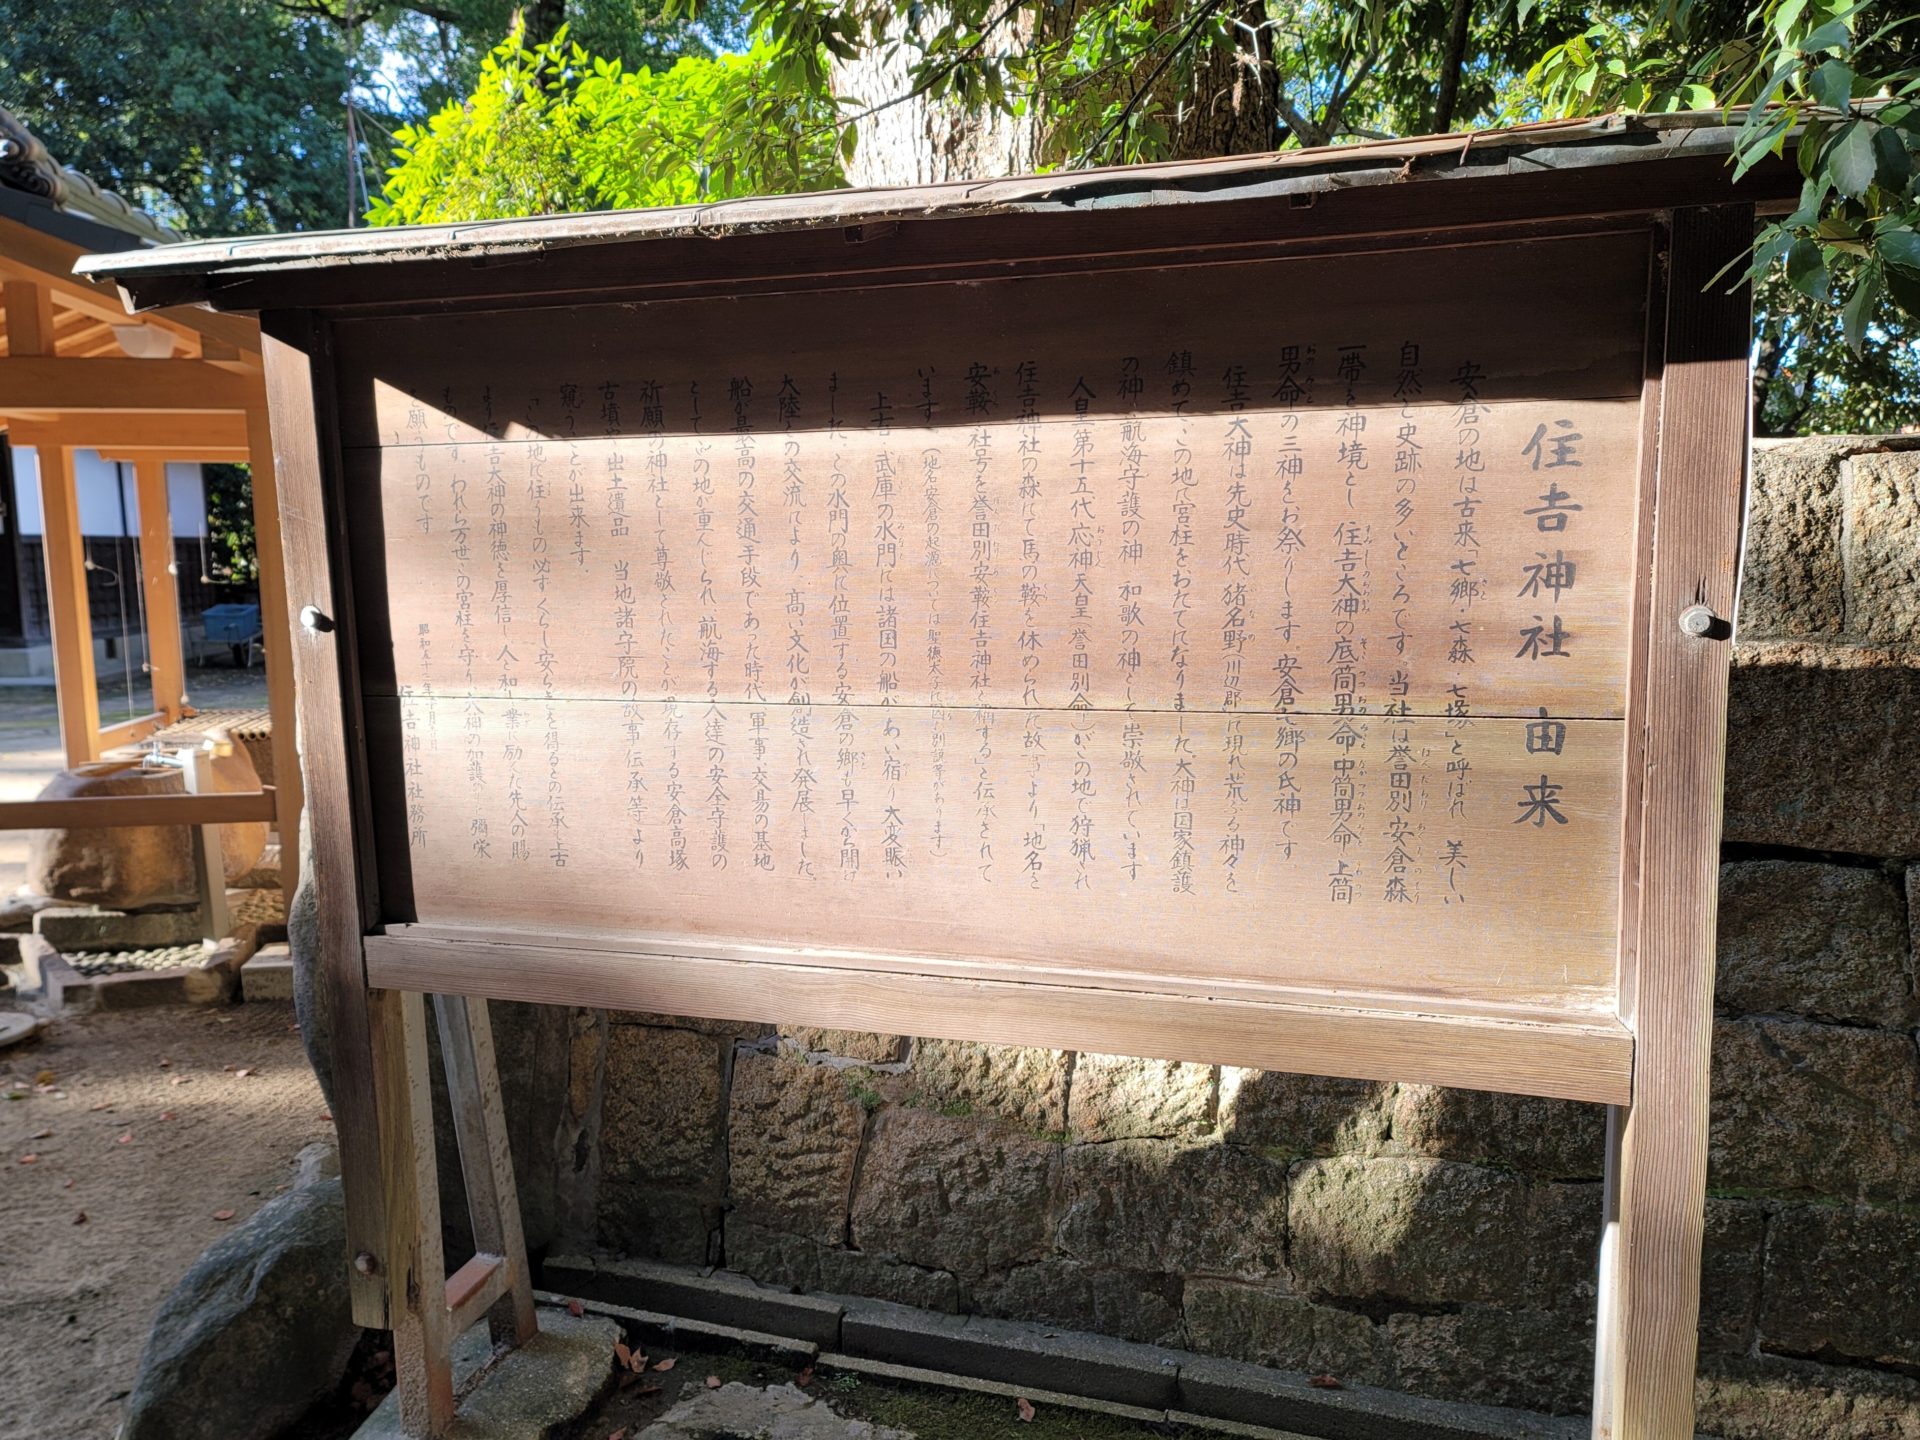 住吉神社由来
安倉の地は古来「七郷・七森・七塚」と呼ばれ 美しい
自然と史跡の多いところです。当社は誉田別安倉森
一帯を神境とし 住吉大神の底筒男命 中筒男命 上筒
男命の三神をお祭りします。安倉七郷の氏神です。
住吉大神は先史時代、猪名野(川辺郡)に現れ荒ぶる神々を
鎮めて、この地に宮柱をおたてになりました。大神は国家鎮護
の神、航海守護の神 和歌の神として崇敬されています
人皇第十五代応神天皇(誉田別命)がこの地で狩猟され
住吉神社の森にて馬の鞍を休められた故事より「地名を
安鞍、社号を誉田別安鞍住吉神社と称する」と伝承されて
います (地名安倉の起源については聖徳太子に因む別説等があります)
上古、武庫の水門には諸国の船があい宿り大変賑い
ました、この水門の奥に位置する安倉の郷も早くから開け
大陸との交流により、高い文化が創造され発展しました。
船が最高の交通手段であった時代、軍事、交易の基地
としてこの地が重んじられ、航海する人達の安全守護の
祈願の神社として尊敬されたことが現存する安倉高塚
古墳や、出土遺品 当地諸寺院の故事、伝承等より
窺うことが出来ます。
この地に住うもの必ずくらし安らぎを得るとの伝承も上古
より住吉大神の神徳を厚信し、人と和し業に励んだ先人の賜
ものです。われら万世この宮柱を守り 大神の加護の 彌栄
を願うものです
昭和五十二年十月
住吉神社社務所